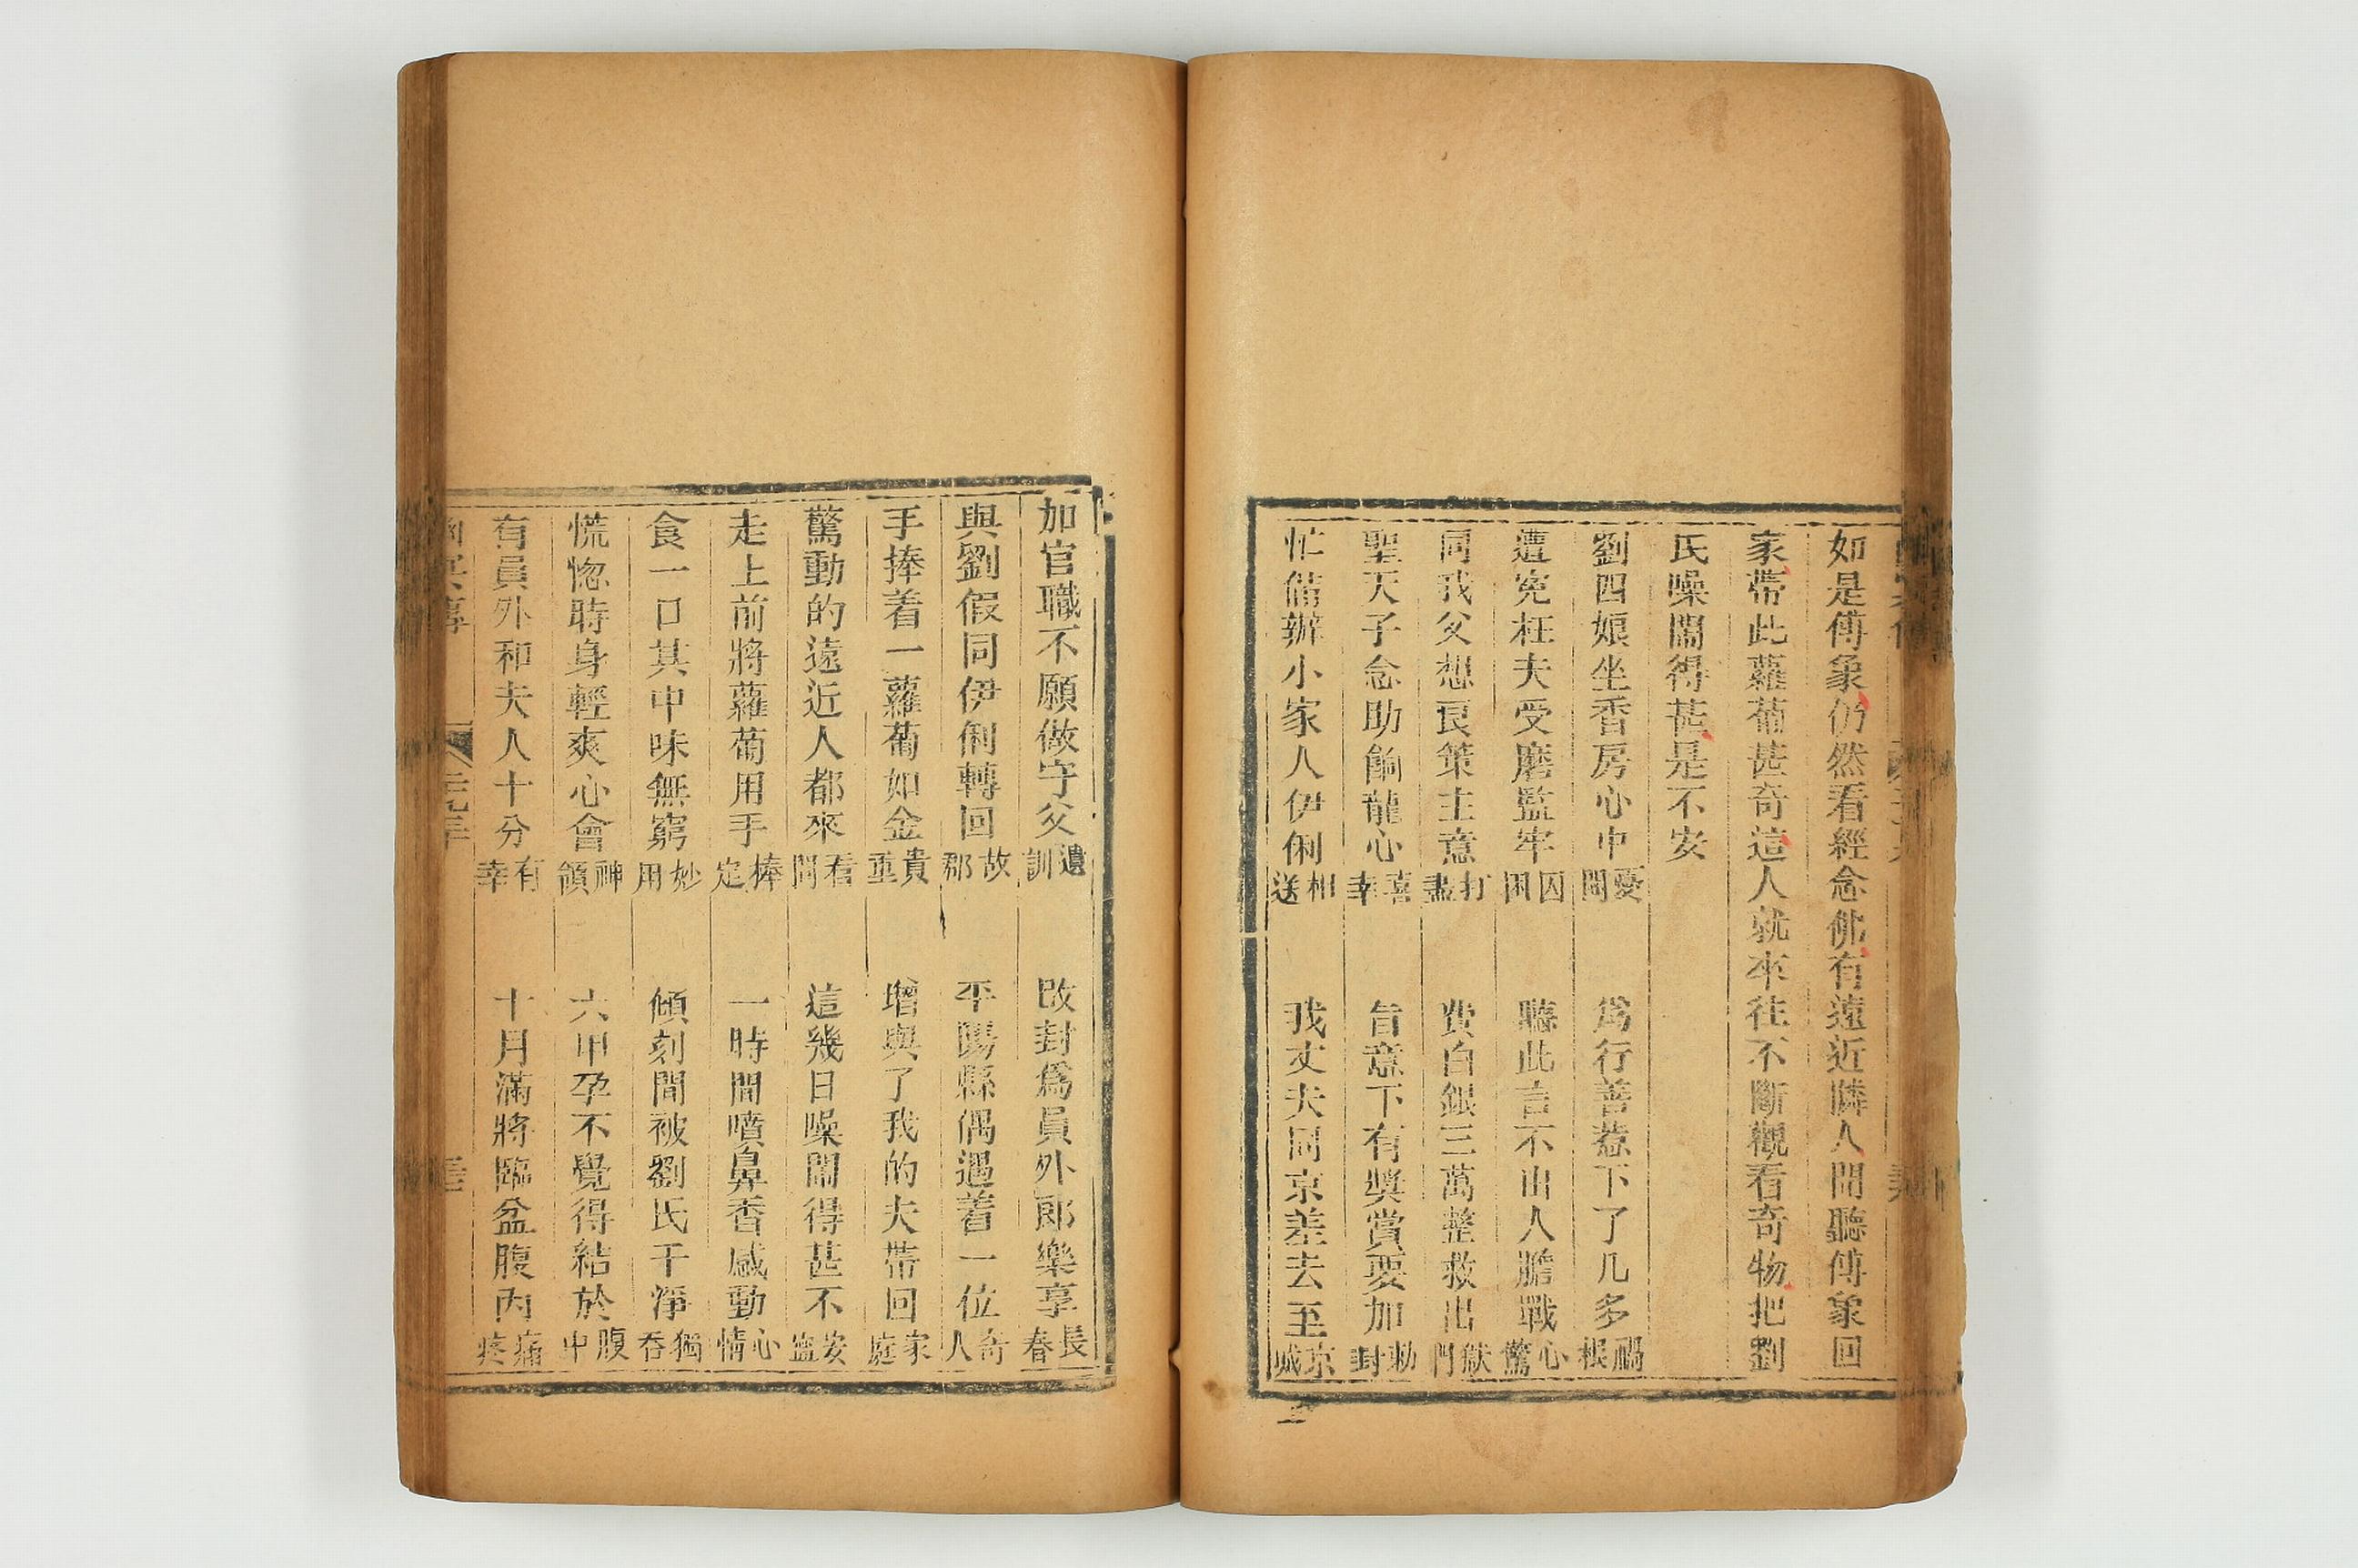 如是傅象仍然看經念佛有遠近隣人聞聽傅象回
家帶此蘿蔔甚奇這人就來往不斷觀看奇物把劉
氏噪鬧得甚是不安
劉四娘坐香房心中憂悶 爲行善惹下了几多禍根
遭冤枉夫受磨監牢囚困 聽此言不由人膽戰心驚
同我父想良策主意打盡 費白銀三萬整救出獄門
聖天子念助餉龍心喜幸 旨意下有獎賞要加勅封
忙偹辦小家人伊俐相送 我丈夫同京差去至京城
加官職不願做守父遺訓 改封爲員外郎樂享長春
與劉假同伊俐轉回故郡 平陽縣偶遇着一位奇人
手捧着一蘿蔔如金貴重 增與了我的夫帶回家庭
驚動的遠近人都來看問 這幾日噪鬧得甚不安寍
走上前將蘿蔔用手捧定 一時間噴鼻香感動心情
食一口其中味無窮妙用 傾刻間被劉氏干淨獨吞
慌惚時身輕爽心會神領 六甲孕不覺得結於腹中
有員外和夫人十分有幸 十月滿將臨盆腹內痛疼